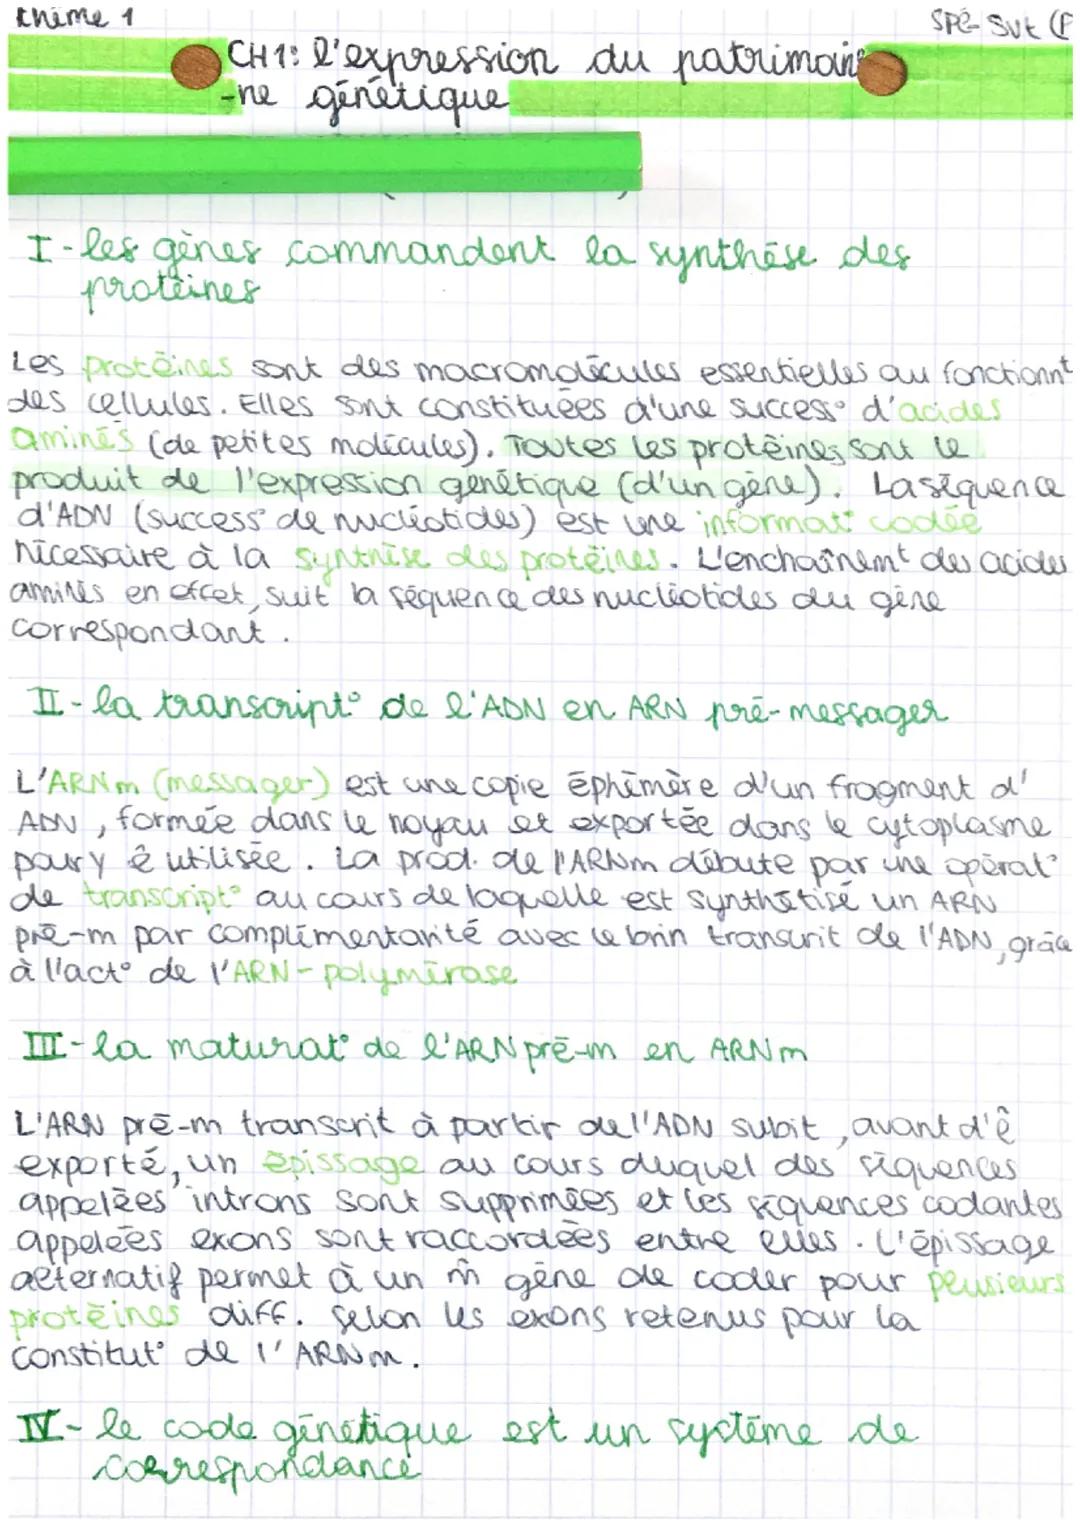 thème 1
SPÉ- SVt (P
CH1: l'expression du patrimoine
-ne génétique
I - les gènes commandent la synthèse des
protéines
Les protéines sont des macromolécules essentielles au fonctionnt
des cellules. Elles sont constituées d'une success° d'acides
aminés (de petites molécules). Toutes les protéines sont le
produit de l'expression génétique (d'un gène). La séquence
d'ADN (success° de nucléotides) est une informat° codée
nécessaire à la synthèse des protéines. L'enchaînemt des acides
aminés en effet, suit la séquence des nucléotides du gène
correspondant.
II - la transcript° de l'ADN en ARN pré-messager
L'ARNm (messager) est une copie éphémère d'un fragment d'
ADN, formée dans le noyau et exportée dans le cytoplasme
pour y ê utilisée. La prod. de l'ARNm débute par une opérat°
de transcript° au cours de laquelle est synthétisé un ARN
pré-m par complémentarité avec le brin transcrit de l'ADN, grâce
à l'act° de l'ARN-polymérase
III - la maturat° de l'ARN pré-m en ARNm
L'ARN pré-m transcrit à partir de l'ADN subit, avant d'ê
exporté, un épissage au cours duquel des séquences
appelées introns sont supprimées et les séquences codantes
appelées exons sont raccordées entre elles. L'épissage
alternatif permet à un m̂ gène de coder pour plusieurs
protéines diff. selon les exons retenus pour la
constitut° de l'ARNm.
IV - le code génétique est un système de
correspondance